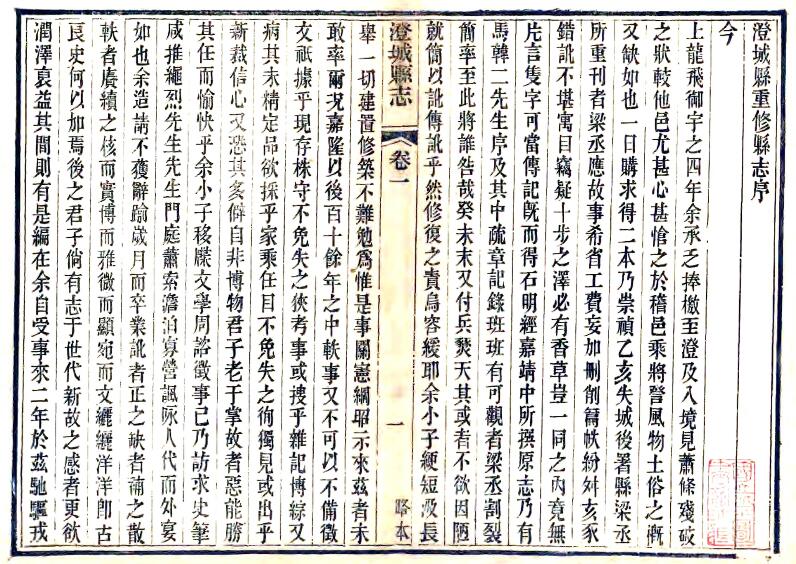 澄城縣重修縣志序
今
上龍飛御宇之四年余承乏捧檄至澄及入境見蕭條殘破
之狀較他邑尤甚心甚愴之於稽邑乘將詧風物土俗之槪
又缺如也一日購求得二本乃崇禎乙亥失城後署縣梁丞
所重刊者梁丞應故事希省工費妄加刪削篇帙紛舛亥豕
錯訛不堪寓目竊疑十步之澤必有香草豈一同之內竟無
片言隻字可當傳記旣而得石明經嘉靖中所撰原志乃有
馬韓二先生序及其中疏章記錄班班有可觀者梁丞割裂
簡率至此將誰咎哉癸未末又付兵燹天其或者不欲因陋
就簡以訛傳訛乎然修復之責烏容緩耶余小子綆短汲長
澄城縣志
卷一
一
略本
舉一切建置修築不難勉爲惟是事關憲綱昭示來茲者未
敢率爾况嘉隆以後百十餘年之中軼事又不可以不備徵
文祇據乎現存株守不免失之狹考事或搜乎雜記博綜又
病其未精定品欲採乎家乘任目不免失之徇獨見或出乎
新裁信心又恐其多僻自非博物君子老于掌故者惡能勝
其任而愉快乎余小子移牒文學周諮徵事已乃訪求史筆
咸推繩烈先生先生門庭蕭索澹泊寡營諷咏人代而外宴
如也余造請不獲辭踰歲月而卒業訛者正之缺者補之散
軼者賡續之核而實博而雅微而顯宛而文纚纚洋洋卽古
良史何以加焉後之君子倘有志于世代新故之感者更欲
潤澤裒益其間則有是編在余自受事來二年於茲馳驅戎